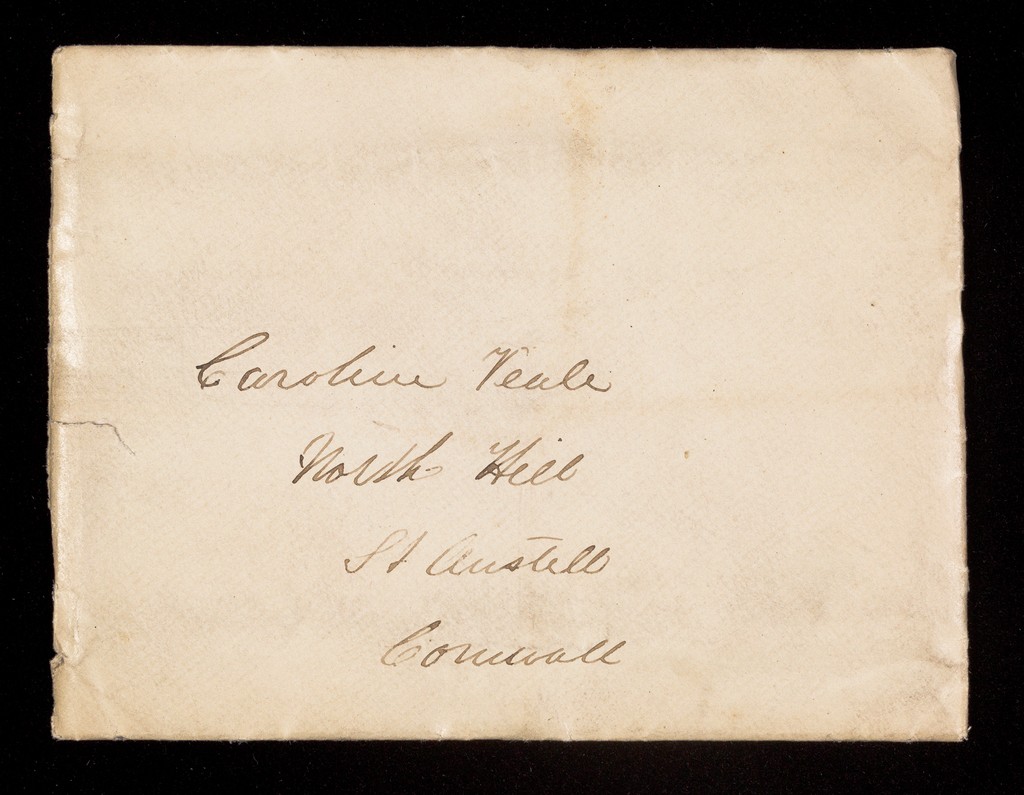 Caroline Veale
North Hill
St Austell
Cornwall